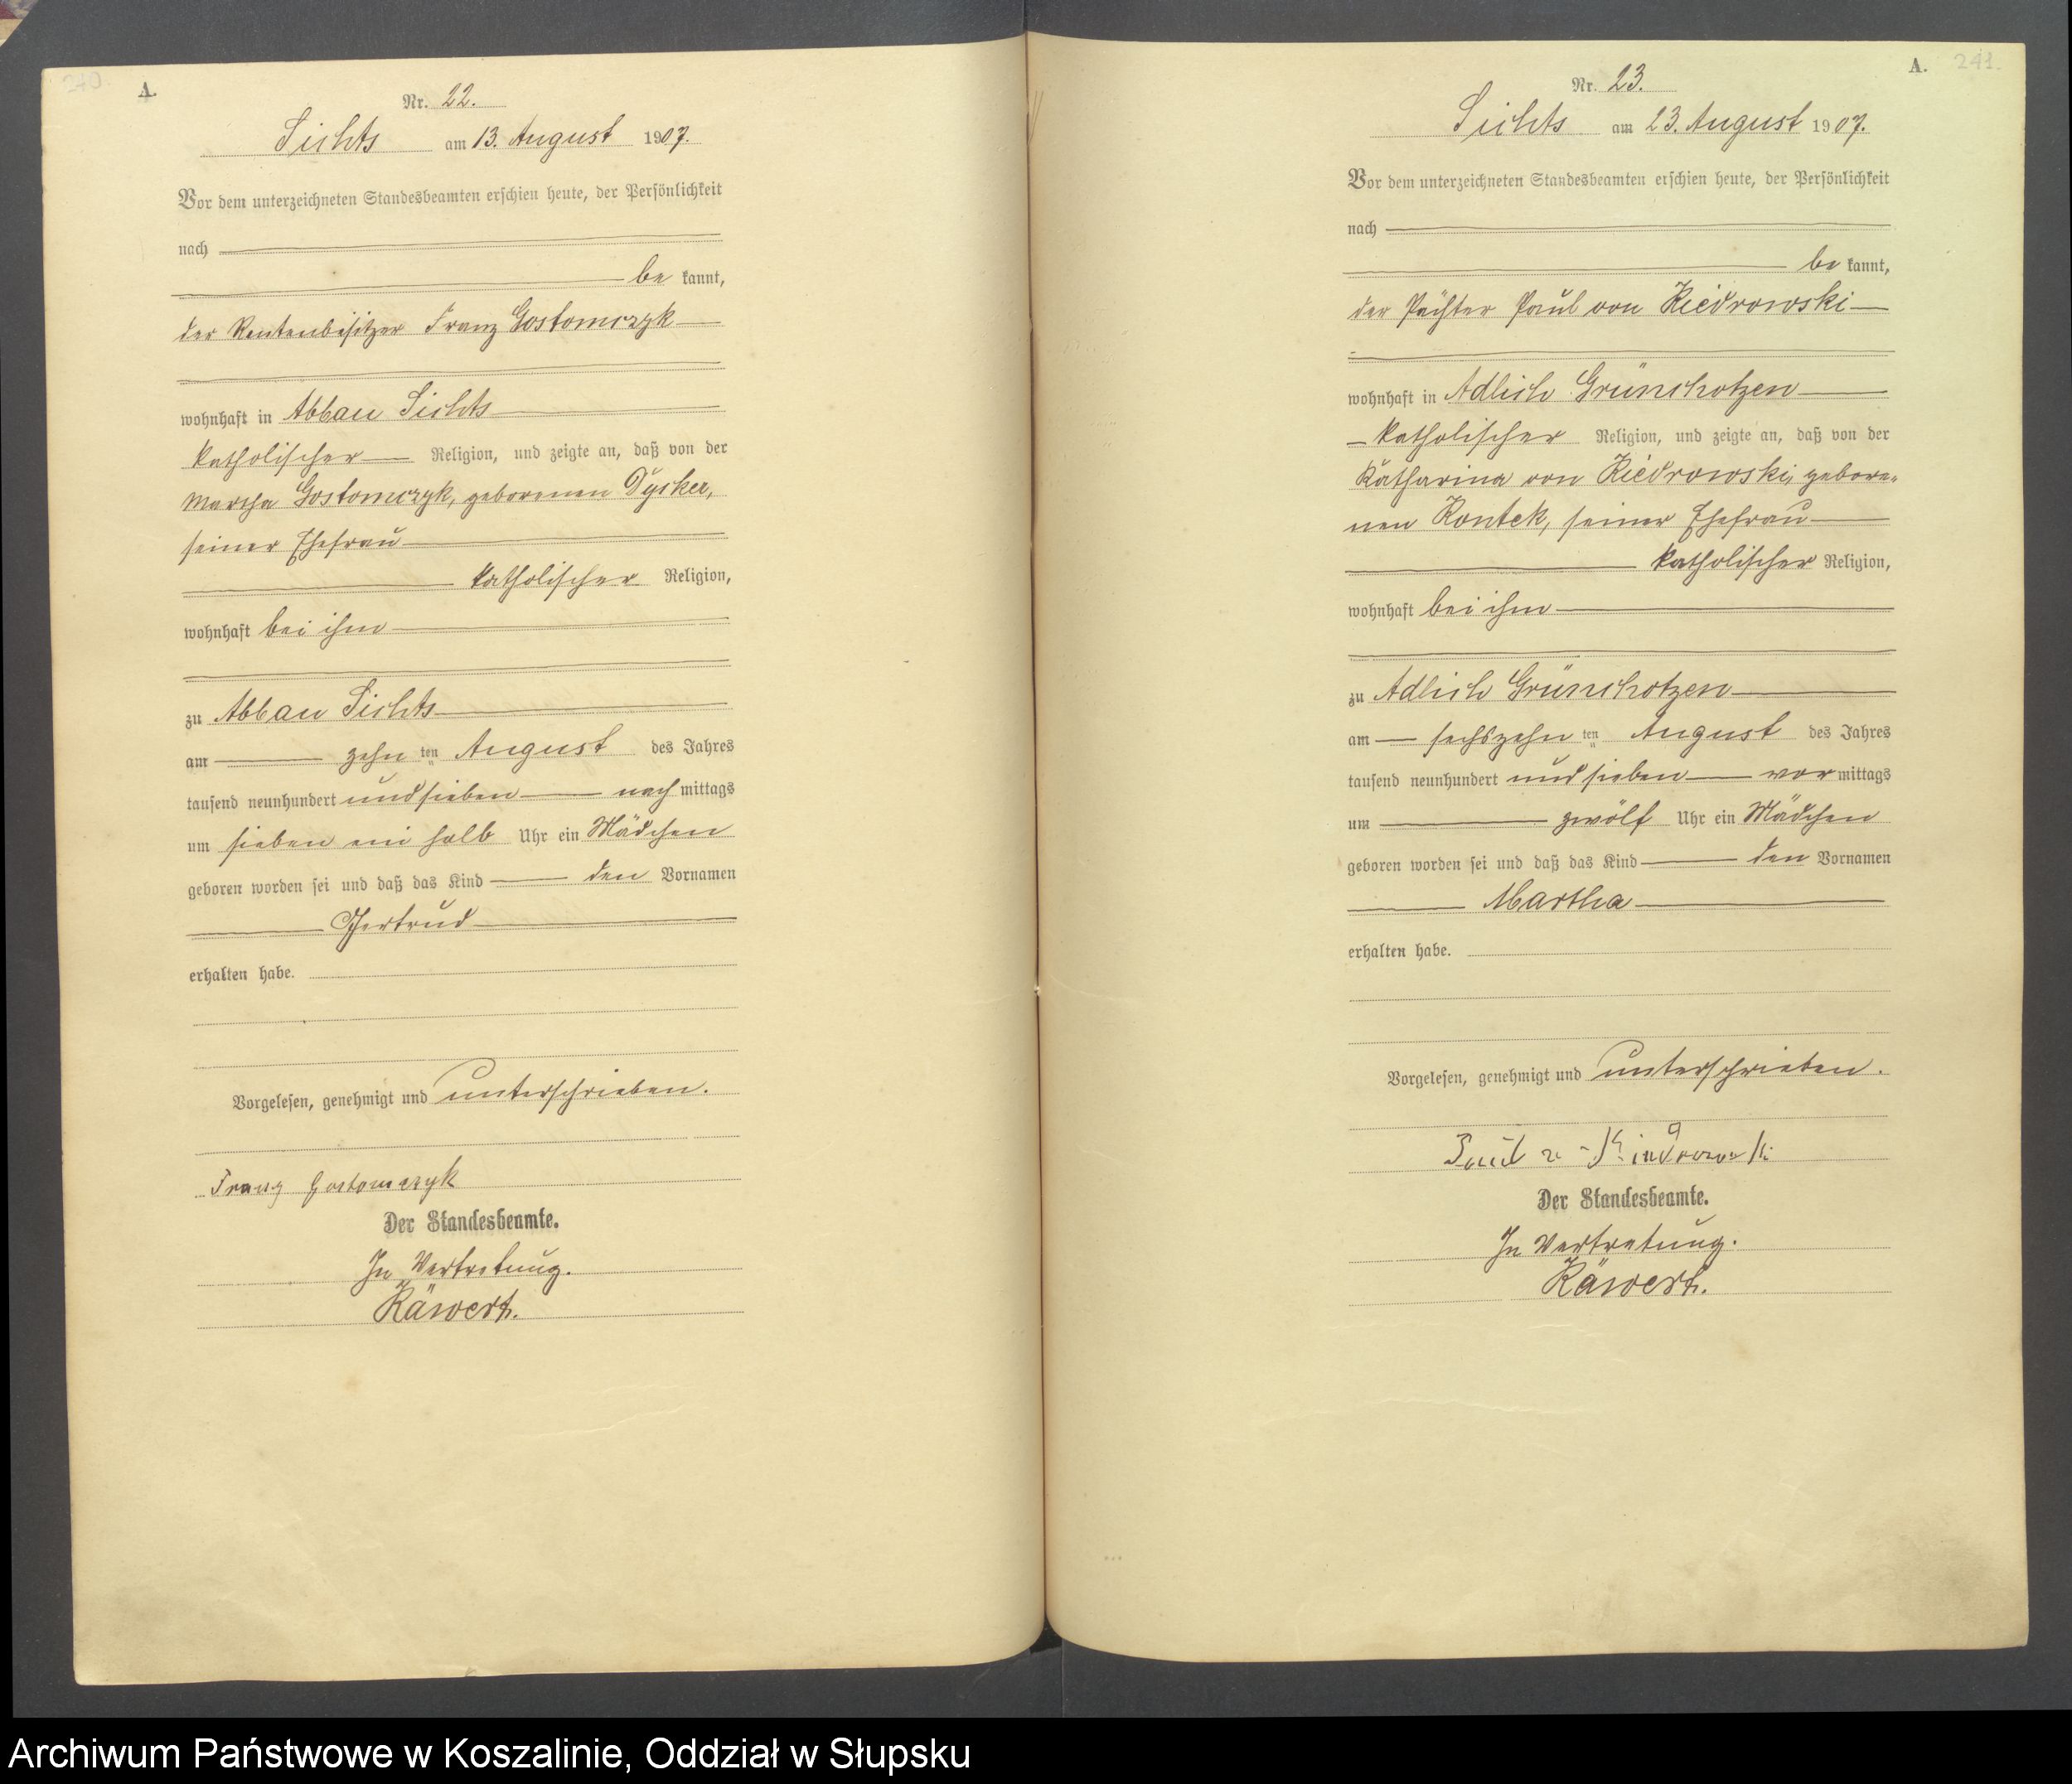 240.
A.
Nr. 22.
Sichts am 13. August 1907.
Vor dem unterzeichneten Standesbeamten erschien heute, der Persönlichkeit
nach
be kannt,
der Rentenbesitzer Franz Gostomczyk
wohnhaft in Abbau Sichts
katholischer Religion, und zeigte an, daß von der
Martha Gostomczyk, geborenen Dysker,
seiner Ehefrau
katholischer Religion,
wohnhaft bei ihm
zu Abbau Sichts
am zehn ten August des Jahres
tausend neunhundert und sieben nach mittags
um sieben ein halb Uhr ein Mädchen
geboren worden sei und daß das Kind den Vornamen
Gertrud
erhalten habe.
Vorgelesen, genehmigt und unterschrieben.
Franz Gostomczyk
Der Standesbeamte.
In Vertretung.
Räwert.
A. 241.
Nr. 23.
Sichts am 23. August 1907.
Vor dem unterzeichneten Standesbeamten erschien heute, der Persönlichkeit
nach
be kannt,
der Pächter Paul von Kiedrowski
wohnhaft in Adlich Grünchotzen
katholischer Religion, und zeigte an, daß von der
Katharina von Kiedrowski, gebore-
nen Rontek, seiner Ehefrau
katholischer Religion,
wohnhaft bei ihm
zu Adlich Grünchotzen
am sechszehn ten August des Jahres
tausend neunhundert und sieben vor mittags
um zwölf Uhr ein Mädchen
geboren worden sei und daß das Kind den Vornamen
Martha
erhalten habe.
Vorgelesen, genehmigt und unterschrieben.
Paul v Kiedrowski
Der Standesbeamte.
In Vertretung.
Räwert.
Archiwum Państwowe w Koszalinie, Oddział w Słupsku